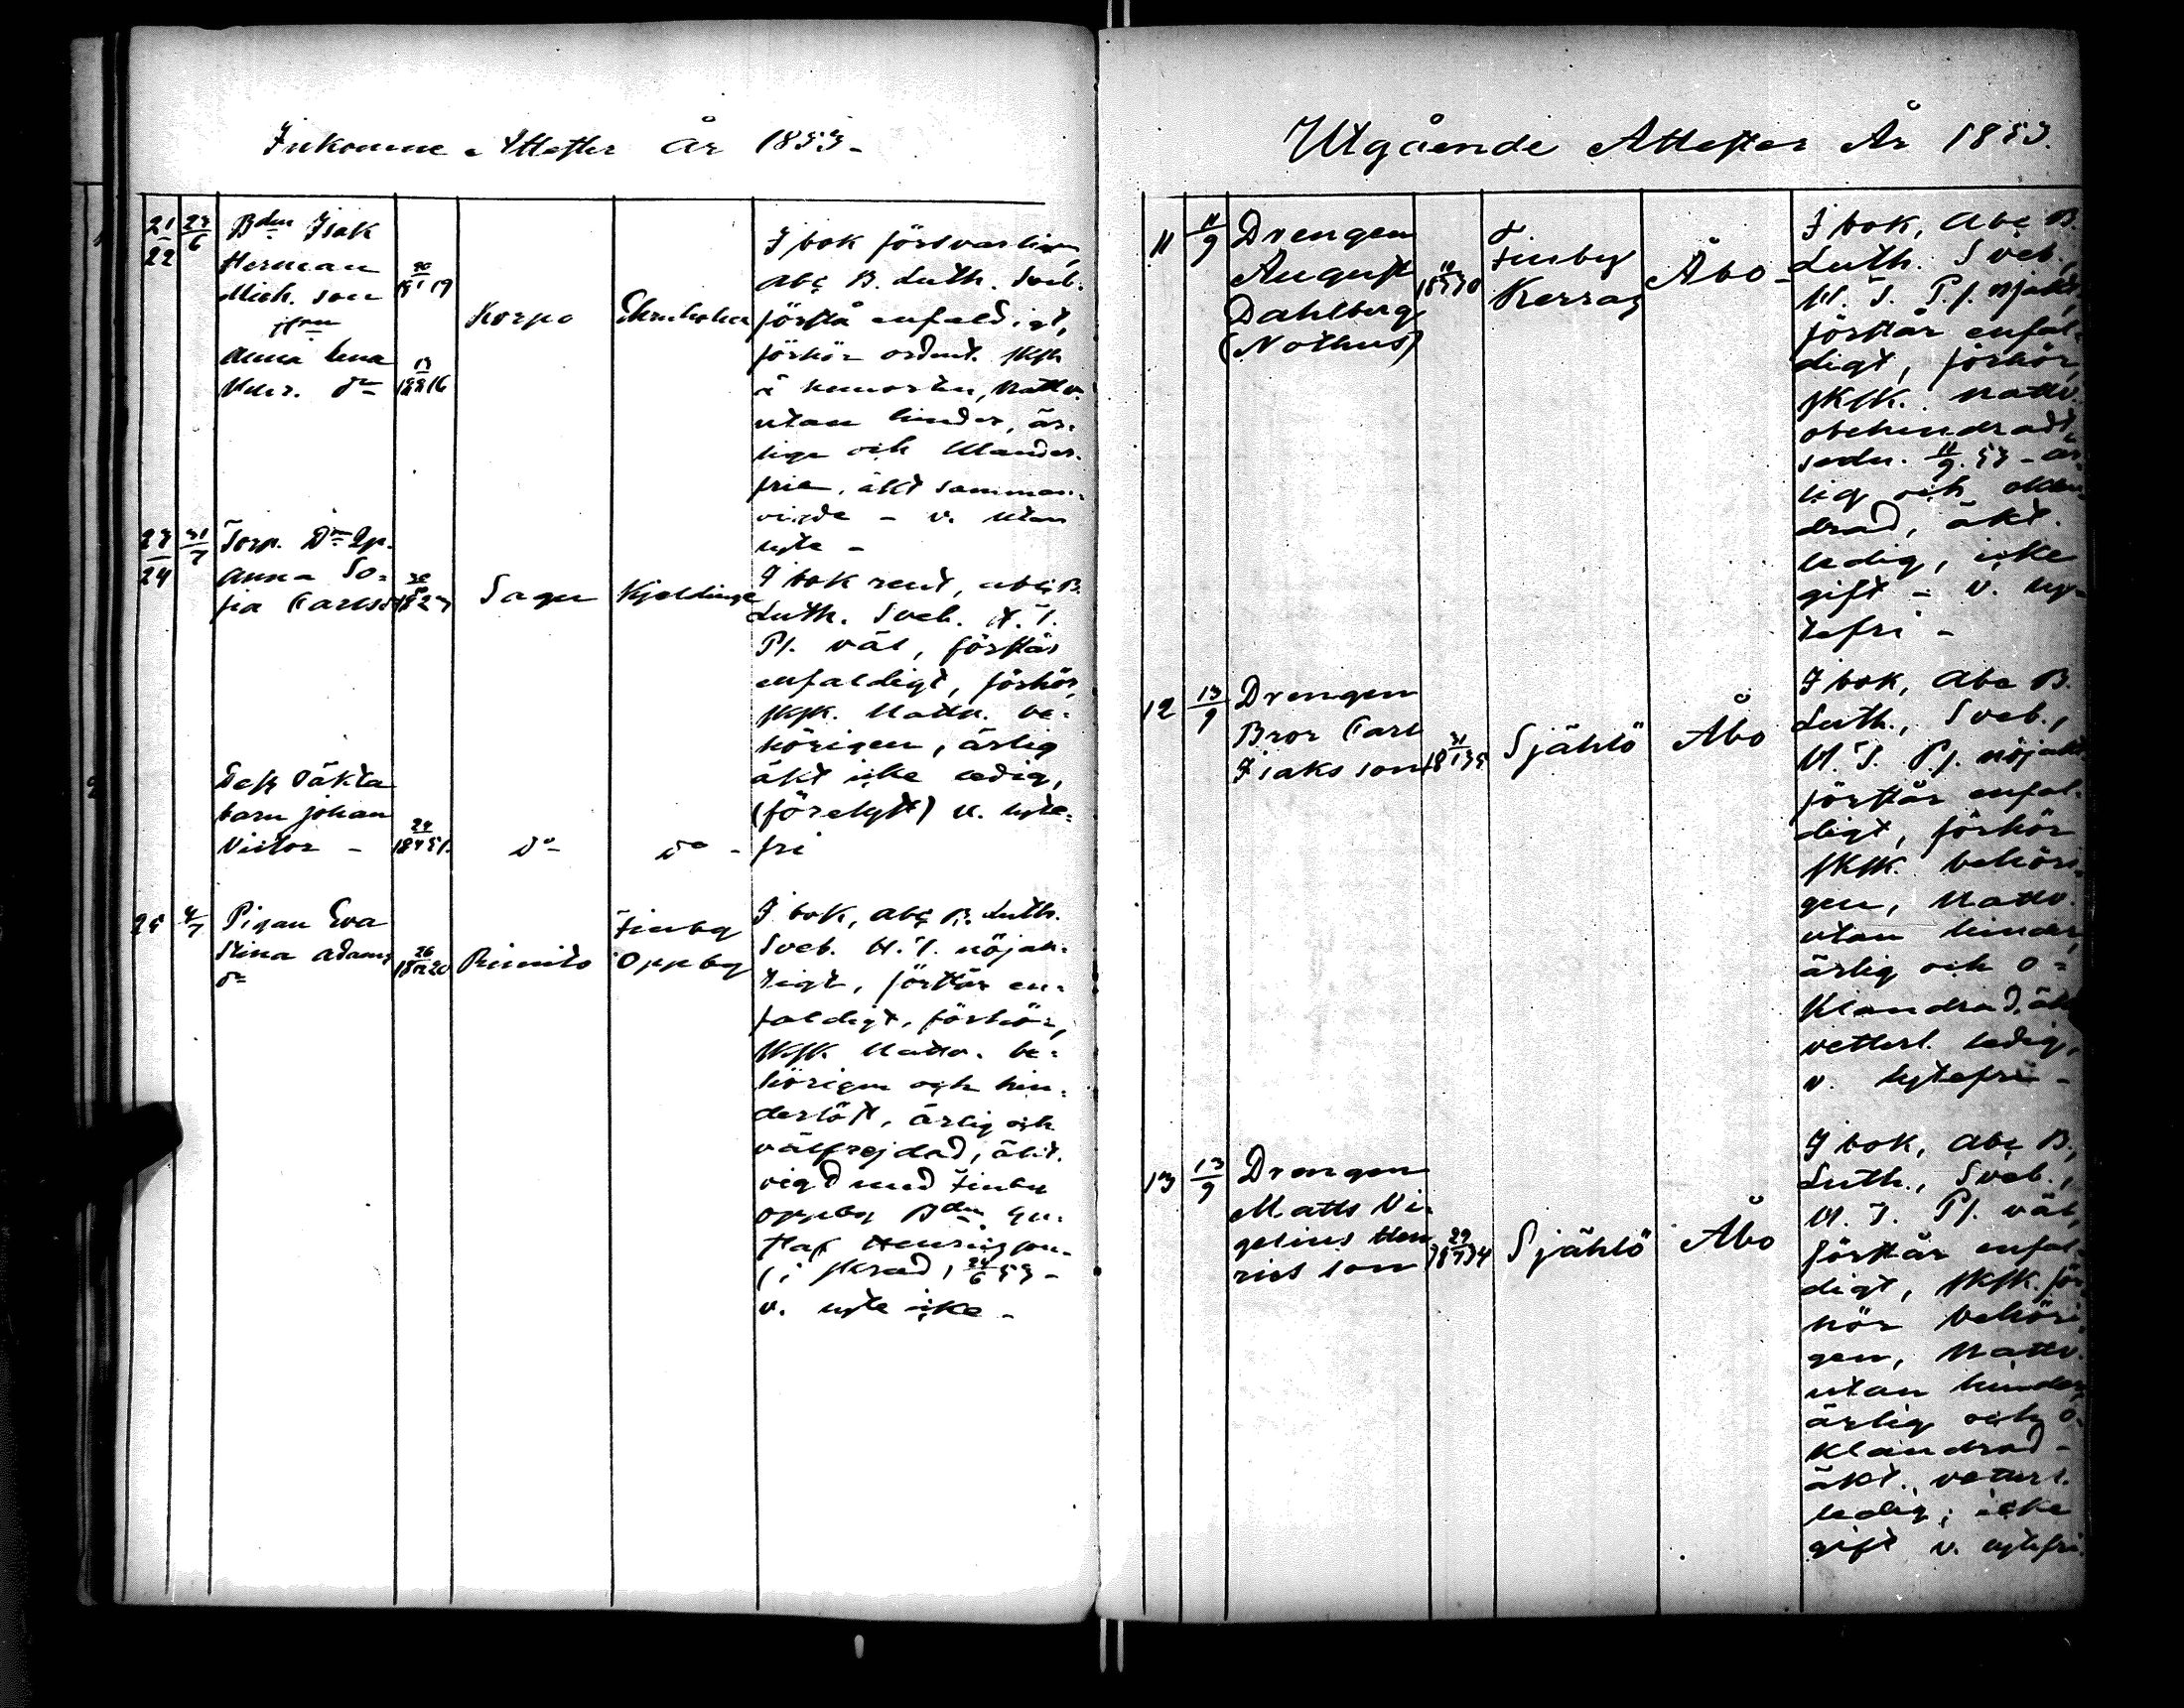 Inkomne Attester År 1853 -
21/22 23/6 Bden Isak
Herman
Mich. son
Anna Lena
Korpo
I bok försvarligen,
abc B. Luth. Sveb.
förstå enfaldigt,
förhör ordent. skfk
å hemorten, Nattv.
utan hinder, är-
liga och klander-
fria, äkt samman-
vigde - v. utan
lyte -
23/24 31/7 Torp.
Anna So-
fia Carlsd
Sagu Kjeldinge
I bok rent, abc B.
Luth. Sveb. H. T.
Ps. väl, förstår
enfaldigt, förhör,
skfk. Nattv. be-
hörigen, ärlig
äkt icke ledig,
(förelyst) v. lyte-
fri
Dess oäkta
barn Johan
Victor - do do -
25 4/7 Pigan Eva
Stina Adams
dr
26/12 1820 Rimito Finby
Oppby
I bok, abc B. Luth.
Sveb. H. T. nöjak-
tigt, förstår en-
faldigt, förhör,
skfk Nattv. be-
hörigen och hin-
derlöst, ärlig och
välfrejdad, äkt.
vigd med Finby
Oppby Bden Gu-
staf Henricsson
24/6 53 -
v. lyte icke -
Utgående Attester År 1853.
11 11/9 Drengen
August
Dahlberg
(Nothus)
Finby
Kerras
Åbo -
I bok, abc B.
Luth. Sveb.,
H. T. Ps. nöjakt
förstår enfal-
digt, förhör,
skfk. Nattv.
obehindradt,
sedn. 11/9. 53 - är-
lig och oklan-
drad, äkt.
ledig, icke
gift - v. ly-
tefri -
12 13/9 Drengen
Bror Carl
Isaksson
31/1 1835 Själlö Åbo
I bok, abc B.
Luth., Sveb.,
H. T. Ps. nöjakt
förstår enfal-
digt, förhör
skfk. behöri-
gen, Nattv.
utan hinder,
ärlig och o-
klandrad, äkt
vetterl. ledig,
v. lytefri -
13 13/9 Drengen
Matts Vi-
gelius Hen
rics son
29/7 1834 Själlö Åbo
I bok, abc B.,
Luth., Sveb.,
H. T. Ps. väl,
förstår enfal-
digt, skfk. för-
hör behöri-
gen, Nattv.
utan hinder,
ärlig och o-
klandrad -
äkt. veterl.
ledig, icke
gift v. lytefri.